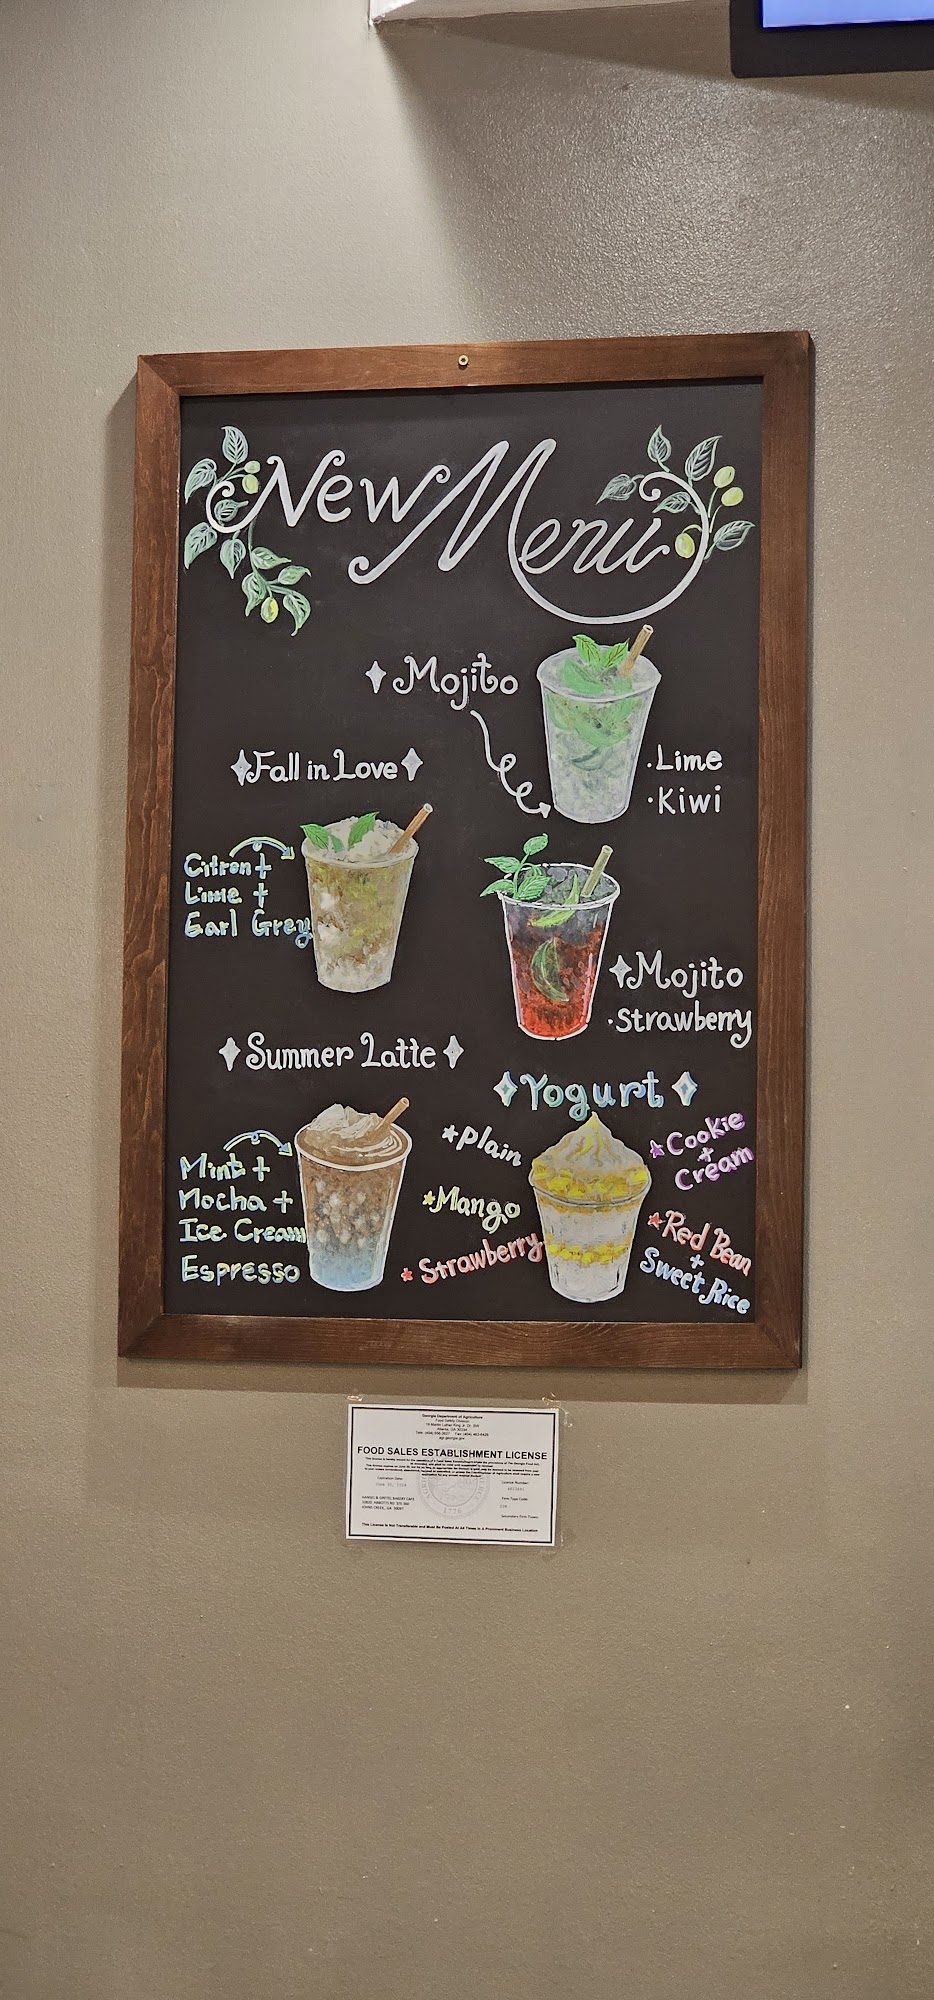 New Menu
Mojito
.Lime
.Kiwi
Fall in Love
Citron +
Lime +
Earl Grey
Mojito
.Strawberry
Summer Latte
Mint +
Mocha +
Ice Cream
Espresso
Yogurt
Plain
Mango
Strawberry
Cookie
+
Cream
Red Bean
+
Sweet Rice
Georgia Department of Agriculture
Food Safety Division
FOOD SALES ESTABLISHMENT LICENSE
Expiration Date:
License Number:
Firm Type Code:
This License is Not Transferable and Must Be Posted At All Times in A Prominent Business Location